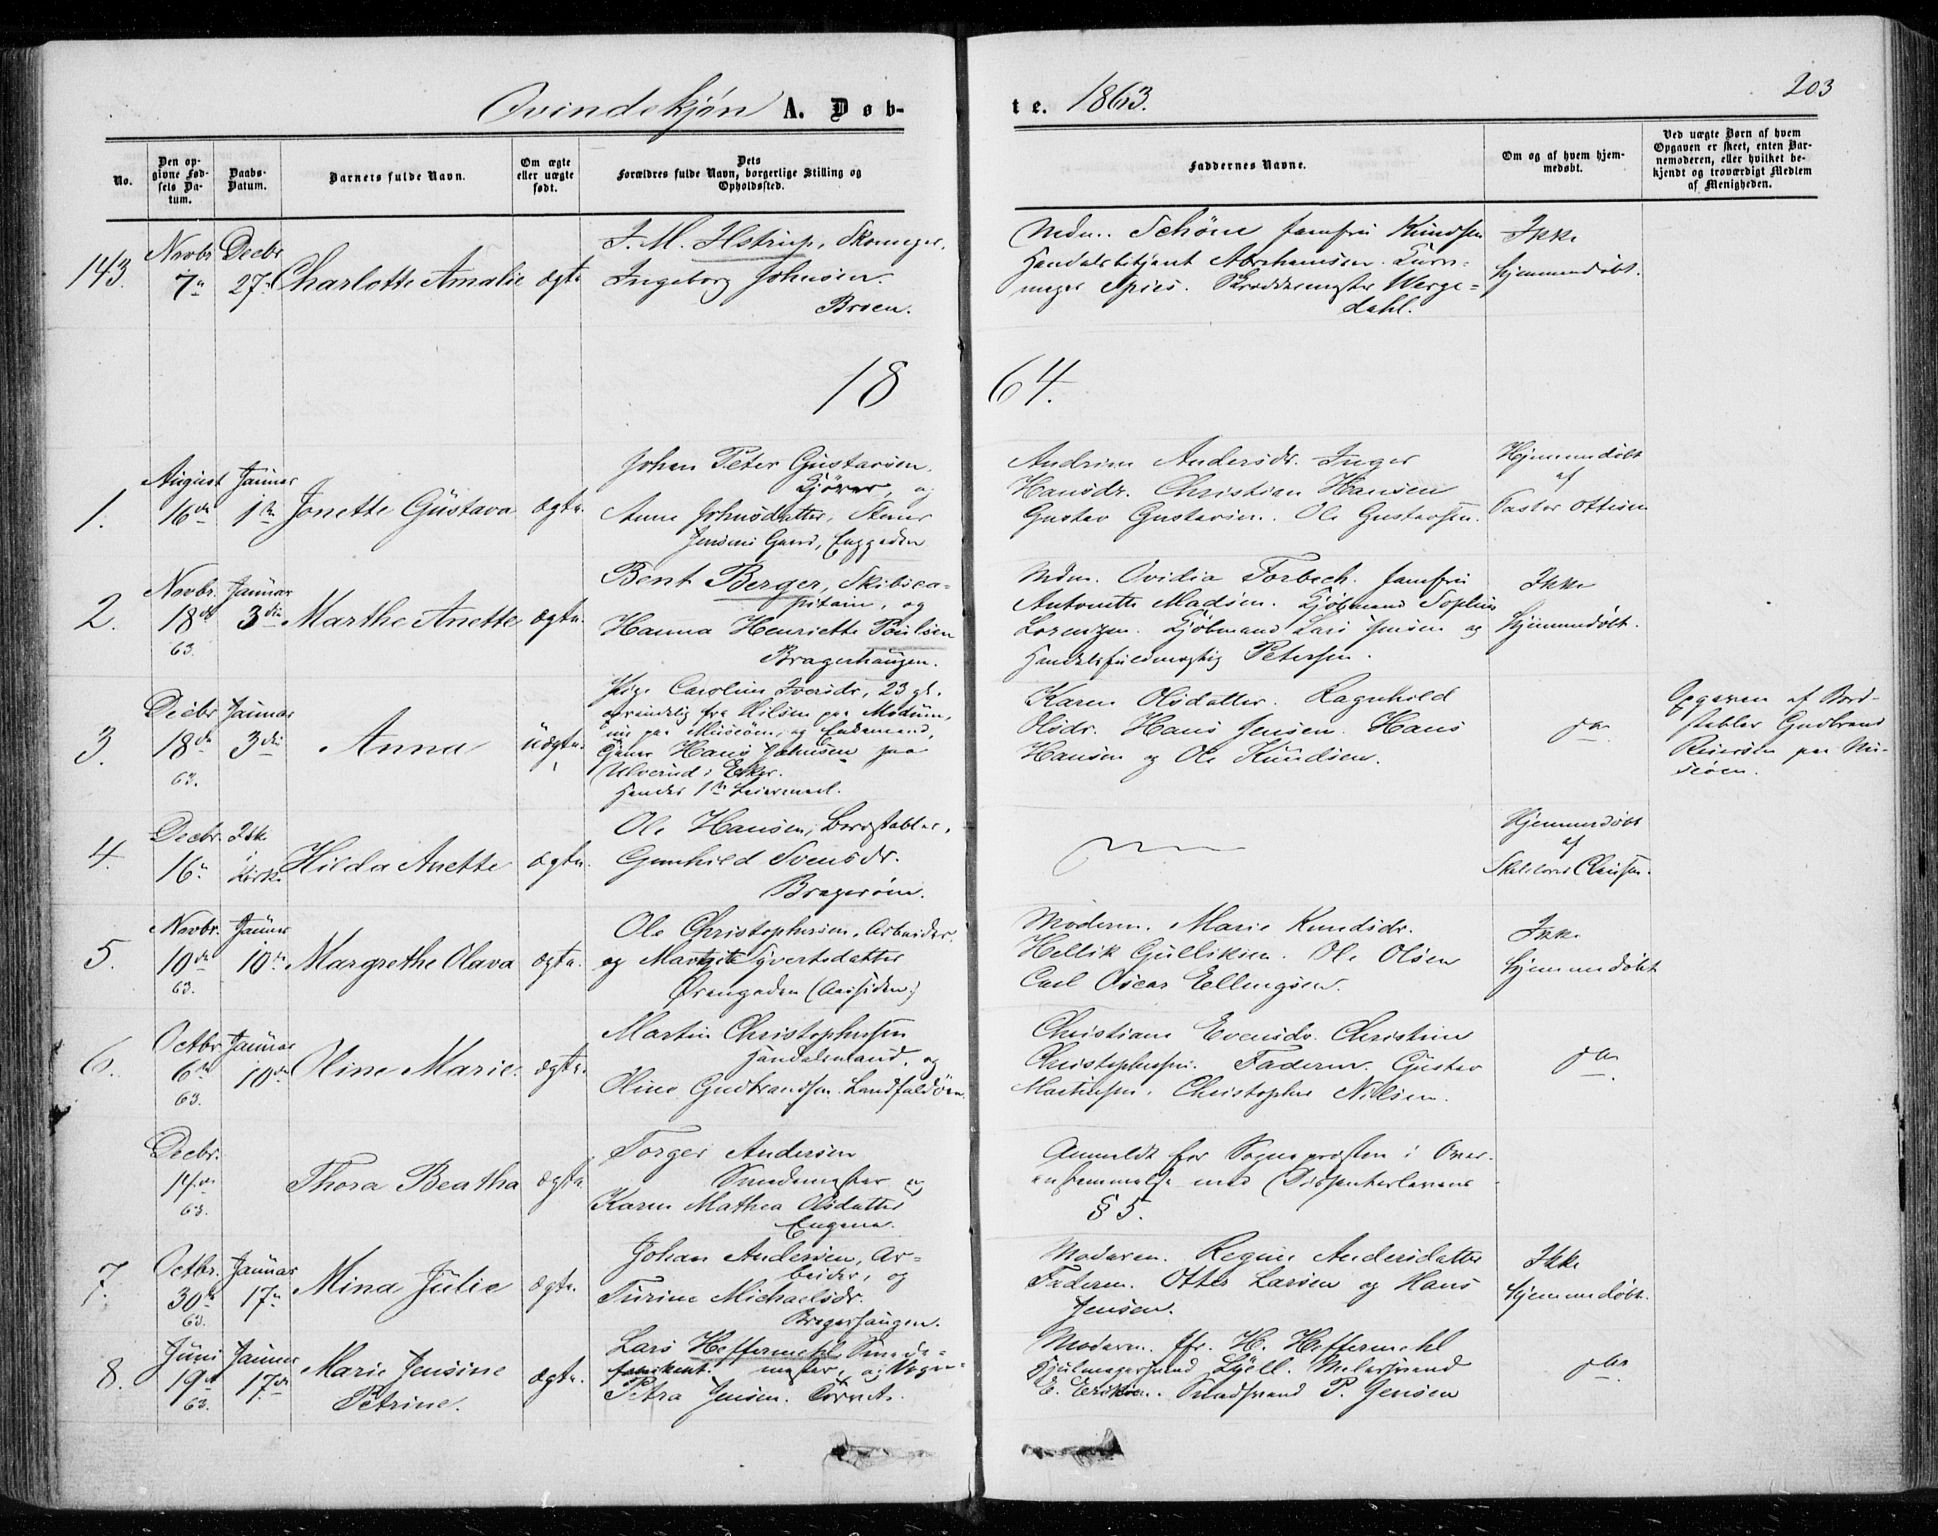 Qvindekjøn A. Døb-
te. 1863.
203
No.
Den op-
givne Fød-
sels Da-
tum.
Daabs-
Datum.
Barnets fulde Navn.
Om ægte
eller uægte
født.
Dets
Forældres fulde Navn, borgerlige Stilling og
Opholdssted.
Faddernes Navne.
Om og af hvem hjem-
medøbt.
Ved uægte Børn af hvem
Opgaven er skeet, enten Bar-
nemoderen, eller hvilket be-
kjendt og troværdigt Medlem
af Menigheden.
143.
Novbr
7de
Decbr
27de
Charlotte Amalie
ægte
J. M. Istrup, Skomager,
Ingeborg Johnsen.
Broen.
Mdm. Schöne Jomfru Knudsen
Handelsbetjent Abrahamsen.
mager Spies. Skræddermester Werge-
dahl.
Ikke
hjemmedøbt.
1864.
1.
August
16de
Januar
1ste
Jonette Gustava
ægte.
Johan Peter Gustavsen,
Kjører, og
Anne Johnsdatter, Stener
Jensens Gaard, Enggaden
Andrine Andersdr. Inger
Hansdr. Christian Hansen
Gustav Gustavsen. Ole Gustavsen.
Hjemmedøbt
af
Pastor Ottesen
2.
Novbr.
18de
63.
Januar
3die
Marthe Anette
ægte.
Bent Berger, Skibsca-
pitain, og
Hanna Henriette Poulsen
Bragerhaugen.
Mdm. Ovidia Forbech. Jomfru
Antonette Madsen. Kjøbmand Sophus
Lorenzen. Kjøbmand Lars Jensen og
Handelsfuldmægtig Petersen.
Ikke
hjemmedøbt.
3.
Decbr
18de
63.
Januar
3die
Anna
uægte.
Pige Caroline Iversdr, 23 gl.
oprindelig fra Hilsen paa Modum,
nu paa Musøen, og Enkemand,
Gjører Hans Johnsen paa
Ulverud i Eker.
Hendes 1ste Leiermaal.
Karen Olsdatter. Ragnhild
Olsdr. Hans Jensen. Hans
Hansen og Ole Knudsen.
do
Opgaven af Bord-
stabler Gudbrand
Reiersen paa Mu-
søen.
4.
Decbr.
16de
Ikke
i
Kirke
Hilda Anette
ægte.
Ole Hansen, Bordstabler,
Gunhild Svensdr.
Bragerøen.
Hjemmedøbt
af
Claussen.
5.
Novbr.
10de
63.
Januar
10de
Margrethe Olava
ægte.
Ole Christophersen, Arbeider,
og Marthe Syvertsdatter
Ørengaden (Aassiden)
Moderen. Marie Knudsdr.
Hellik Gulliksen. Ole Olsen
Carl Oscar Ellingsen.
Ikke
hjemmedøbt
6.
Octbr
6te
63.
Januar
10de
Oline Marie.
ægte.
Martin Christophersen
Handelsmand, og
Oline Gudbrandsen. Landfaldøen.
Christiane Evensdr. Christine
Christophersen. Faderen. Gustav
Martinsen. Christopher Nilsen.
do
Decbr.
14de
63.
Thora Beatha
ægte.
Torger Andersen
Smedemester og
Karen Mathea Olsdatter
Engene.
Anmeldt for Sognepresten i Over-
ensstemmelse med Dissenterlovens
§ 5.
7.
Octbr.
30te
63.
Januar
17de
Mina Julie
ægte.
Johan Andersen, Ar-
beider, og
Turine Michaelsdr.
Bragerhaugen.
Moderen. Regine Andersdatter
Faderen. Otter Larsen og Hans
Jensen.
Ikke
hjemmedøbt.
8.
Juni
19de
63.
Januar
17de
Marie Jensine
Petrine.
ægte.
Lars Heffermehl, Smede-
mester, og Vogn-
fabrikant.
Petra Jensen. Torvet.
Moderen. Jfr. H. Heffermehl
Hjulmagersvend Lyell. Malersvend
E. Eriksen. Smedsvend P. Jensen
do